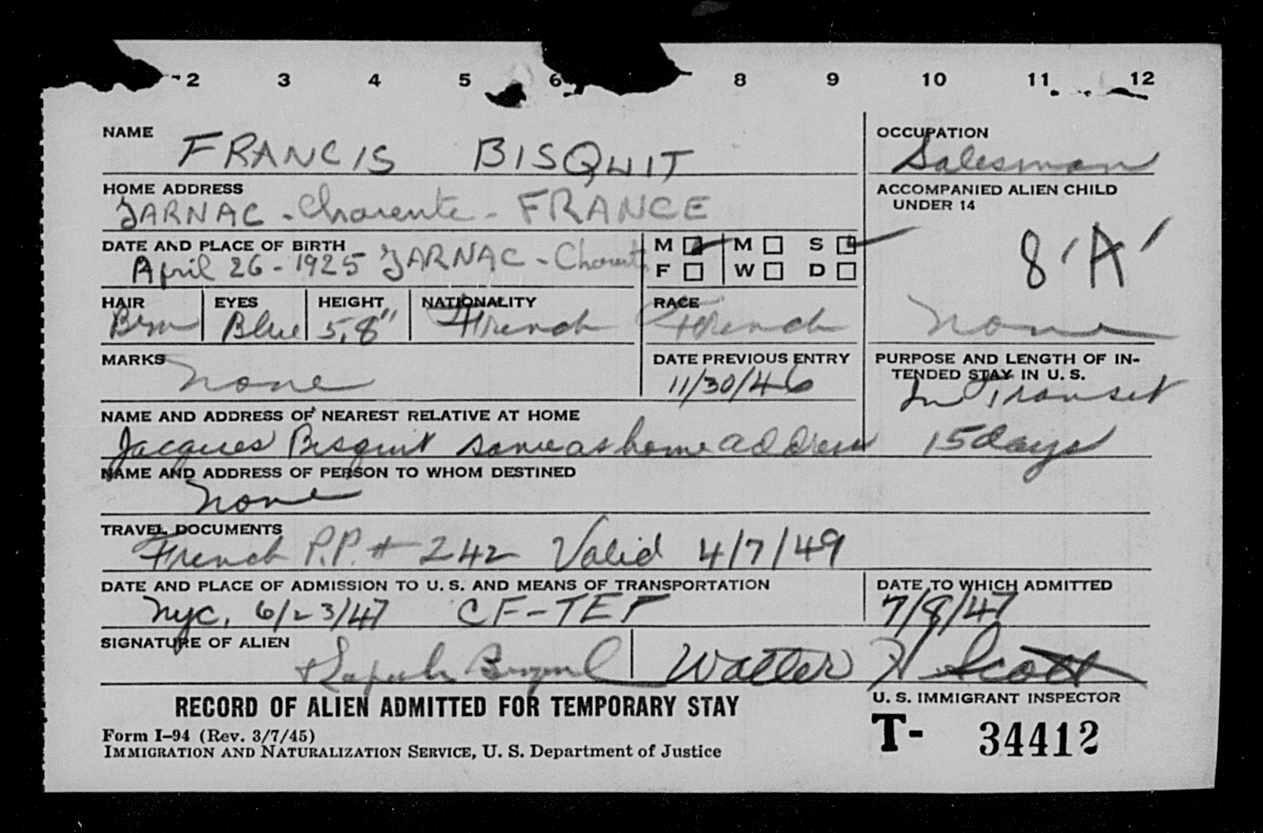 2 3 4 5 6 8 9 10 11 12
NAME FRANCIS BISQUIT
OCCUPATION Salesman
HOME ADDRESS JARNAC - Charente - FRANCE
ACCOMPANIED ALIEN CHILD
UNDER 14
8 'A'
none
DATE AND PLACE OF BIRTH April 26 - 1925 JARNAC - Charente
M M S
F W D
HAIR Brn EYES Blue HEIGHT 5,8" NATIONALITY French RACE French
MARKS none
DATE PREVIOUS ENTRY 11/30/46
PURPOSE AND LENGTH OF IN-
TENDED STAY IN U. S.
In Transit
15 days
NAME AND ADDRESS OF NEAREST RELATIVE AT HOME
Jacques Bisquit same as home address
NAME AND ADDRESS OF PERSON TO WHOM DESTINED
none
TRAVEL DOCUMENTS
French P.P. # 242 Valid 4/7/49
DATE AND PLACE OF ADMISSION TO U. S. AND MEANS OF TRANSPORTATION
nyc, 6/23/47 CF-TEF
DATE TO WHICH ADMITTED
7/8/47
SIGNATURE OF ALIEN
Walter H Scott
U. S. IMMIGRANT INSPECTOR
RECORD OF ALIEN ADMITTED FOR TEMPORARY STAY
Form I-94 (Rev. 3/7/45)
IMMIGRATION AND NATURALIZATION SERVICE, U. S. Department of Justice
T- 34412